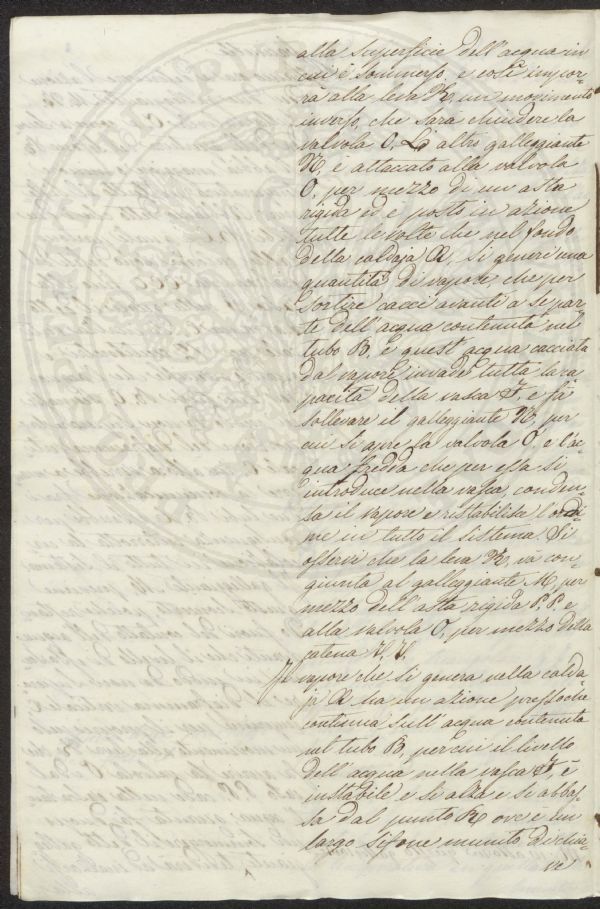 alla superficie dell'acqua in
cui è sommerso, e così impor-
rà alla leva R, un movimento
inverso, che sarà chiudere la
valvola O. Lo altro galleggiante
N, è attaccato alla valvola
O, per mezzo di un asta
rigida ed è posto in azione
tutte le volte che nel fondo
della caldaja A, si generi una
quantità di vapore, che per
sortire cacci avanti a se par-
te dell'acqua contenuta nel
tubo B, e quest'acqua cacciata
dal vapore invade tutta la ca
pacità della vasca F, e fà
sollevare il galleggiante N, per
cui si apre la valvola O, e l'ac-
qua fredda che per essa si
introduce nella vasca, conden-
sa il vapore e ristabilisce l'ordi-
ne in tutto il sistema. Si
osservi che la leva R, và con-
giunta al galleggiante M, per
mezzo dell'asta rigida P. P. e
alla valvola O, per mezzo della
catena V, V,
Il vapore che si genera nella calda
ja A ha un azione pressochè
continua sull'acqua contenuta
nel tubo B, per cui il livello
dell'acqua nella vasca F, è
instabile e si alza e si abbas-
sa dal punto R ove è un
largo sifone munito di chia-
ve